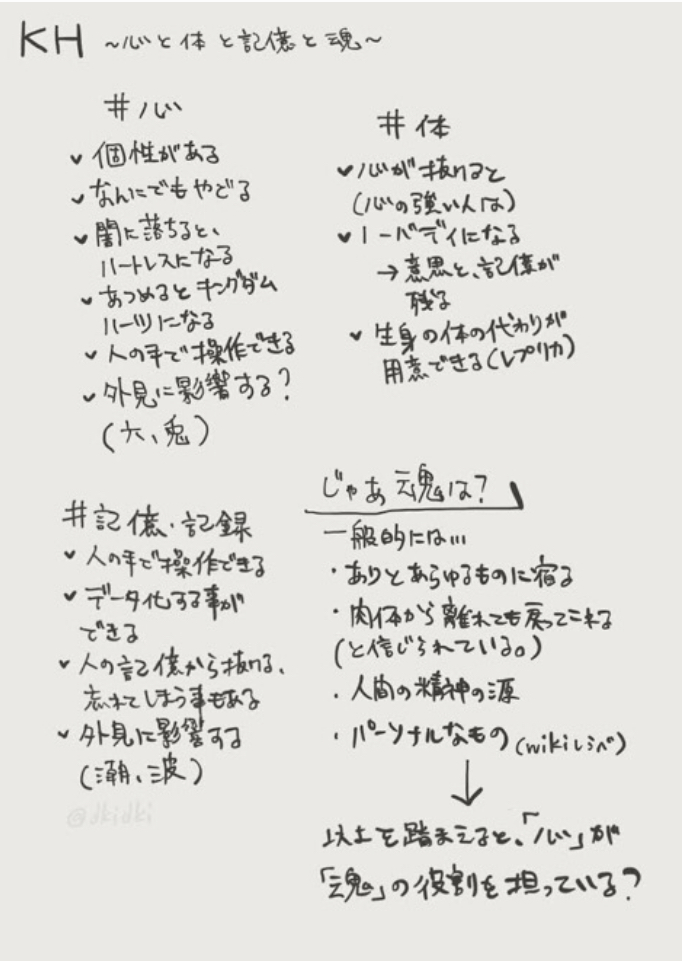 KH ~心と体と記憶と魂~
# 心
✓ 個性がある
✓ なんにでもやどる
✓ 闇に落ちると、
ハートレスになる
✓ あつめるとキングダム
ハーツになる
✓ 人の手で操作できる
✓ 外見に影響する?
(六、兎)
# 体
✓ 心が抜けると
(心の強い人は)
✓ ノーバディになる
→ 意思と、記憶が
残る
✓ 生身の体の代わりが
用意できる(レプリカ)
# 記憶・記録
✓ 人の手で操作できる
✓ データ化する事が
できる
✓ 人の記憶から抜ける、
忘れてしまう事もある
✓ 外見に影響する
(潮、波)
@dkidki
じゃあ魂は?
一般的には…
・ありとあらゆるものに宿る
・肉体から離れても戻ってこれる
(と信じられている。)
・人間の精神の源
・パーソナルなもの (wikiしらべ)
↓
以上を踏まえると、「心」が
「魂」の役割を担っている?